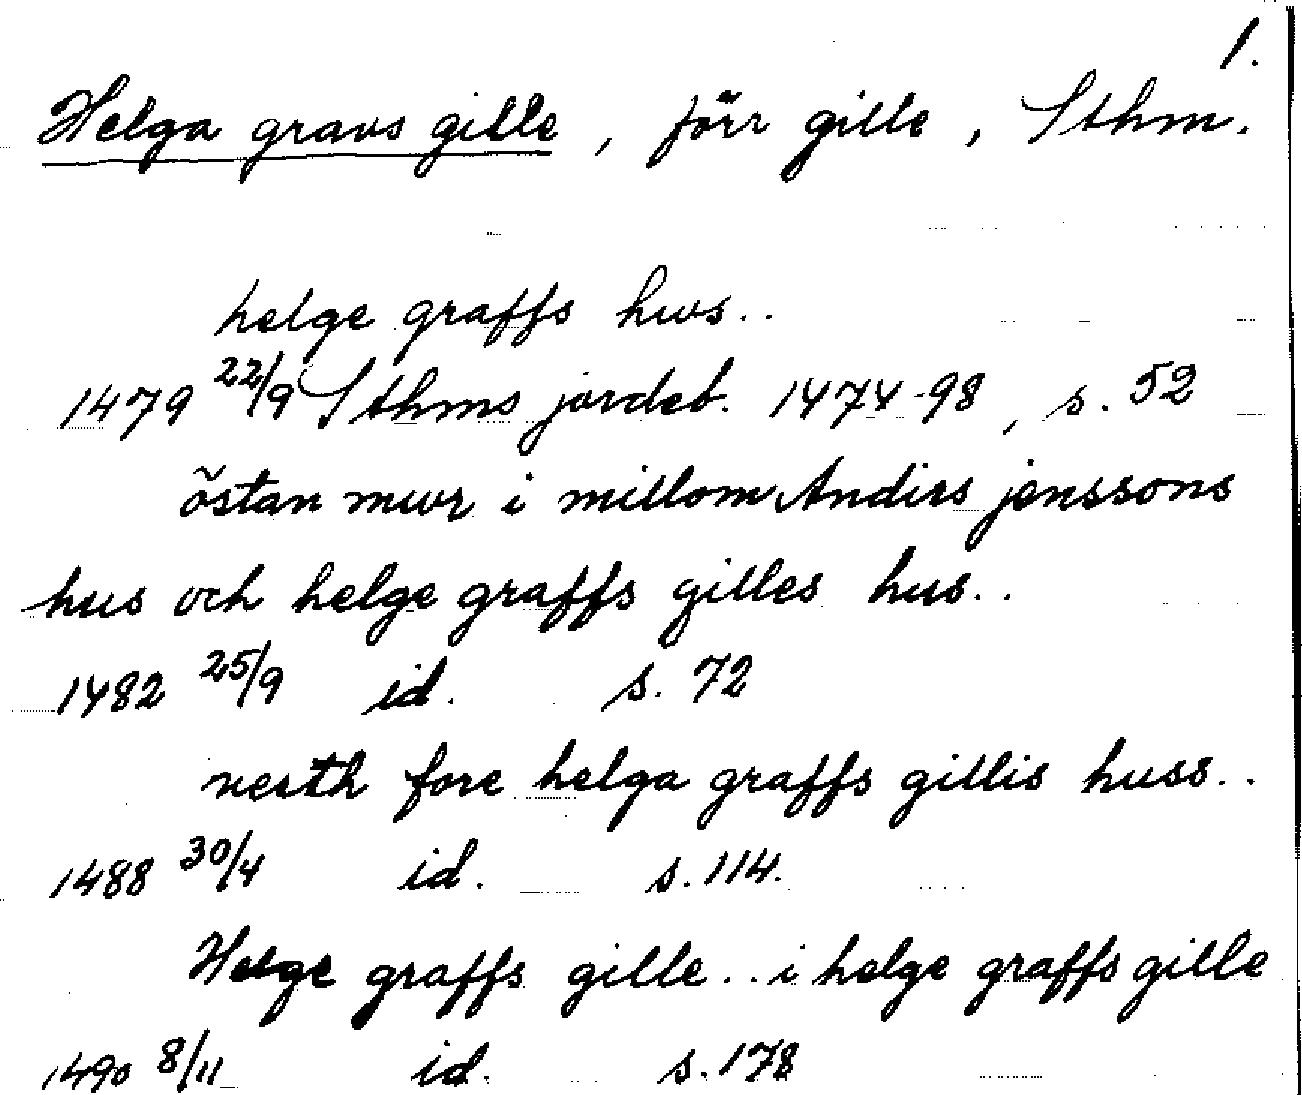 1.
Helga gravs gille, förr gille, Sthm.
helge graffs hws..
1479 22/9 Sthms jordeb. 1474-98, s. 52
östan mwr i millom Anders jenssons
hus och helge graffs gilles hus..
1482 25/9 id. s. 72
nesth fore helga graffs gillis huss..
1488 30/4 id. s. 114.
Helge graffs gille.. i helge graffs gille
1490 8/11 id. s. 178